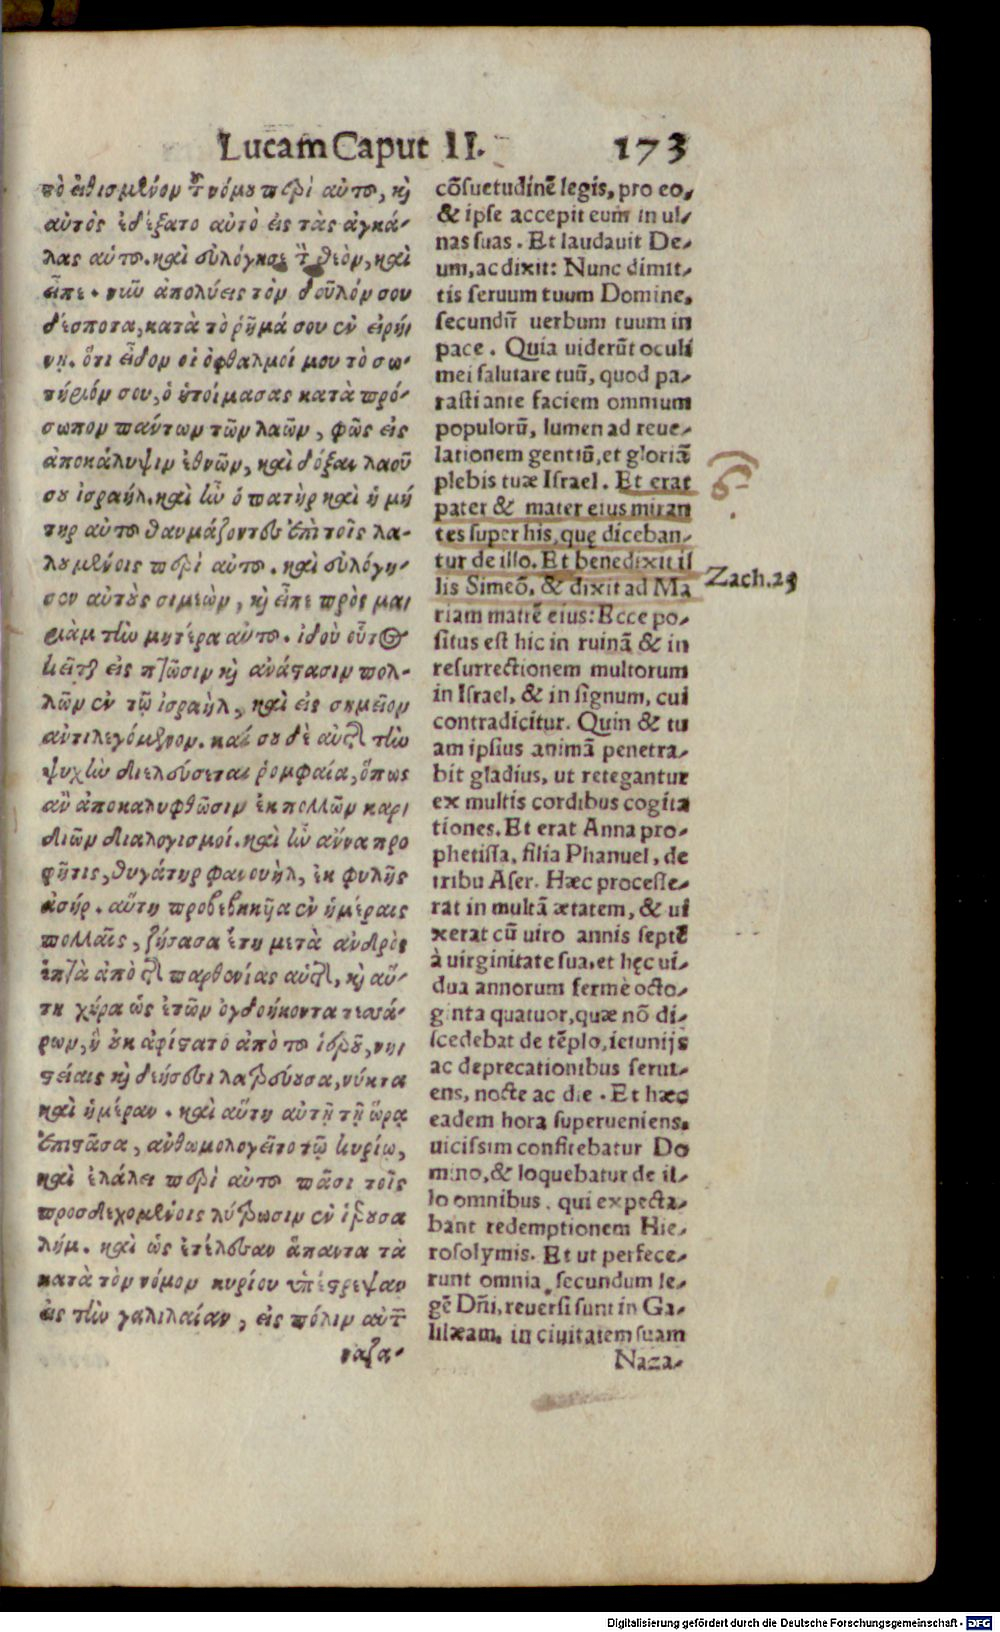 Lucam Caput II. 173
τὸ εἰθισμένον τοῦ νόμου περὶ αὐτοῦ, κὶ
αὐτὸς ἐδέξατο αὐτὸ εἰς τὰς ἀγκά-
λας αὐτοῦ. καὶ εὐλόγησε τὸν θεὸν, καὶ
εἶπε. νῦν ἀπολύεις τὸν δοῦλόν σου
δέσποτα, κατὰ τὸ ῥῆμά σου ἐν εἰρήι
νῃ. ὅτι εἶδον οἱ ὀφθαλμοί μου τὸ σω-
τήριόν σου, ὁ ἡτοίμασας κατὰ πρό-
σωπον πάντων τῶν λαῶν, φῶς εἰς
ἀποκάλυψιν ἐθνῶν, καὶ δόξαν λαοῦ
σου ἰσραήλ. καὶ ἦν ὁ πατὴρ καὶ ἡ μή
τηρ αὐτοῦ θαυμάζοντες ἐπὶ τοῖς λα-
λουμένοις περὶ αὐτοῦ. καὶ εὐλόγη-
σεν αὐτοὺς σιμεὼν, κὶ εἶπε πρὸς μαι
ριὰμ τὴν μητέρα αὐτοῦ. ἰδοὺ οὗτος
κεῖται εἰς πτῶσιν κὶ ἀνάστασιν πολ-
λῶν ἐν τῷ ἰσραὴλ, καὶ εἰς σημεῖον
ἀντιλεγόμενον. καὶ σου δὲ αὐτῆς τὴν
ψυχὴν διελεύσεται ῥομφαία, ὅπως
ἂν ἀποκαλυφθῶσιν ἐκ πολλῶν καρι
διῶν διαλογισμοί. καὶ ἦν ἄννα προ
φῆτις, θυγάτηρ φανουὴλ, ἐκ φυλῆς
ἀσήρ. αὕτη προβεβηκῦα ἐν ἡμέραις
πολλαῖς, ζήσασα ἔτη μετὰ ἀνδρὸς
ἑπτὰ ἀπὸ τῆς παρθενίας αὐτῆς, κὶ αὕ-
τη χήρα ὡς ἐτῶν ὀγδοήκοντα τεσσά-
ρων, ἣ οὐκ ἀφίστατο ἀπὸ τοῦ ἱεροῦ, νηι
στείαις κὶ δεήσεσι λατρεύουσα, νύκτα
καὶ ἡμέραν. καὶ αὕτη αὐτῇ τῇ ὥρᾳ
ἐπιστᾶσα, ἀνθωμολογεῖτο τῷ κυρίῳ,
καὶ ἐλάλει περὶ αὐτοῦ πᾶσι τοῖς
προσδεχομένοις λύτρωσιν ἐν ἱερουσα
λήμ. καὶ ὡς ἐτέλεσαν ἅπαντα τὰ
κατὰ τὸν νόμον κυρίου ὑπέστρεψαν
εἰς τὴν γαλιλαίαν, εἰς πόλιν αὐτῶν
ναζα-
cõsuetudinẽ legis, pro eo,
& ipse accepit eum in ul-
nas suas. Et laudauit De-
um, ac dixit: Nunc dimit-
tis seruum tuum Domine,
secundũ uerbum tuum in
pace. Quia uiderũt oculi
mei salutare tuũ, quod pa-
rasti ante faciem omnium
populorũ, lumen ad reue-
lationem gentiũ, et gloriã
plebis tuæ Israel. Et erat
pater & mater eius miran
tes super his, quę diceban-
tur de illo. Et benedixit il
lis Simeõ, & dixit ad Ma
riam matrẽ eius: Ecce po-
situs est hic in ruinã & in
resurrectionem multorum
in Israel, & in signum, cui
contradicitur. Quin & tu
am ipsius animã penetra-
bit gladius, ut retegantur
ex multis cordibus cogita
tiones. Et erat Anna pro-
phetissa, filia Phanuel, de
tribu Aser. Hæc processe-
rat in multã ætatem, & ui
xerat cũ uiro annis septẽ
à uirginitate sua, et hęc ui-
dua annorum fermè octo-
ginta quatuor, quæ nõ di-
scedebat de tẽplo, ieiunijs
ac deprecationibus serui-
ens, nocte ac die. Et hæc
eadem hora superueniens,
uicissim confitebatur Do
mino, & loquebatur de il-
lo omnibus, qui expecta-
bant redemptionem Hie-
rosolymis. Et ut perfece-
runt omnia, secundum le-
gẽ Dñi, reuersi sunt in Ga-
lilæam, in ciuitatem suam
Naza-
Zach. 23
Digitalisierung gefördert durch die Deutsche Forschungsgemeinschaft - DFG